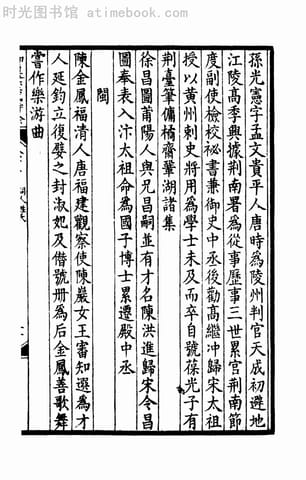 时光图书馆 - atimebook.com
孫光憲字孟文貴平人唐時爲陵州判官天成初避地
江陵高季興據荆南署爲從事歷事三世累官荆南節
度副使檢校祕書兼御史中丞後勸高繼冲歸宋太祖
授以黄州刺史將用爲學士未及而卒自號葆光子有
荆臺筆傭橘齋鞏湖諸集
徐昌圖莆陽人與兄昌嗣並有才名陳洪進歸宋令昌
圖奉表入汴太祖命爲國子博士累遷殿中丞
閩
陳金鳳福清人唐福建觀察使陳巖女王審知選爲才
人延鈞立復嬖之封淑妃及僣號冊爲后金鳳善歌舞
嘗作樂游曲